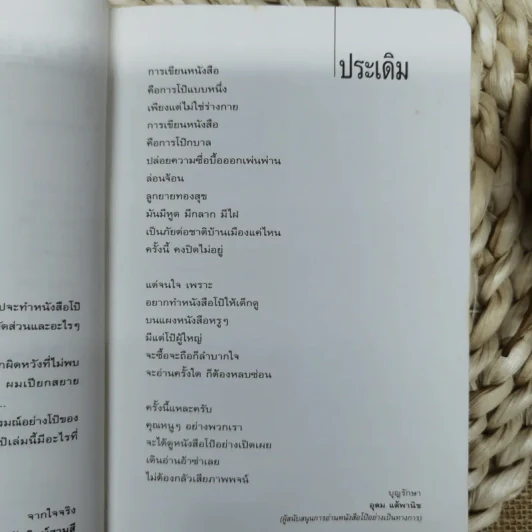 ประเดิม
การเขียนหนังสือ
คือการโป๊แบบหนึ่ง
เพียงแต่ไม่ใช่ร่างกาย
การเขียนหนังสือ
คือการโป๊กบาล
ปล่อยความซื่อบื้อออกเพ่นพ่าน
ล่อนจ้อน
ลูกยายทองสุข
มันมีหูด มีกลาก มีไฝ
เป็นภัยต่อชาติบ้านเมืองแค่ไหน
ครั้งนี้ คงปิดไม่อยู่
แต่จนใจ เพราะ
อยากทำหนังสือโป๊ให้เด็กดู
บนแผงหนังสือหรูๆ
มีแต่โป๊ผู้ใหญ่
จะซื้อจะถือก็ลำบากใจ
จะอ่านครั้งใด ก็ต้องหลบซ่อน
ครั้งนี้แหละครับ
คุณหนูๆ อย่างพวกเรา
จะได้ดูหนังสือโป๊อย่างเปิดเผย
เดินอ่านอ้าซ่าเลย
ไม่ต้องกลัวเสียภาพพจน์
บุญรักษา
อุดม แต้พานิช
(ผู้สนับสนุนการอ่านหนังสือโป๊อย่างเป็นทางการ)
ปจะทำหนังสือโป๊
ัดส่วนและอะไรๆ
กผิดหวังที่ไม่พบ
ผมเปียกสยาย
...
รมณ์อย่างโป๊ของ
ป๊เล่มนี้มีอะไรที่
จากใจจริง